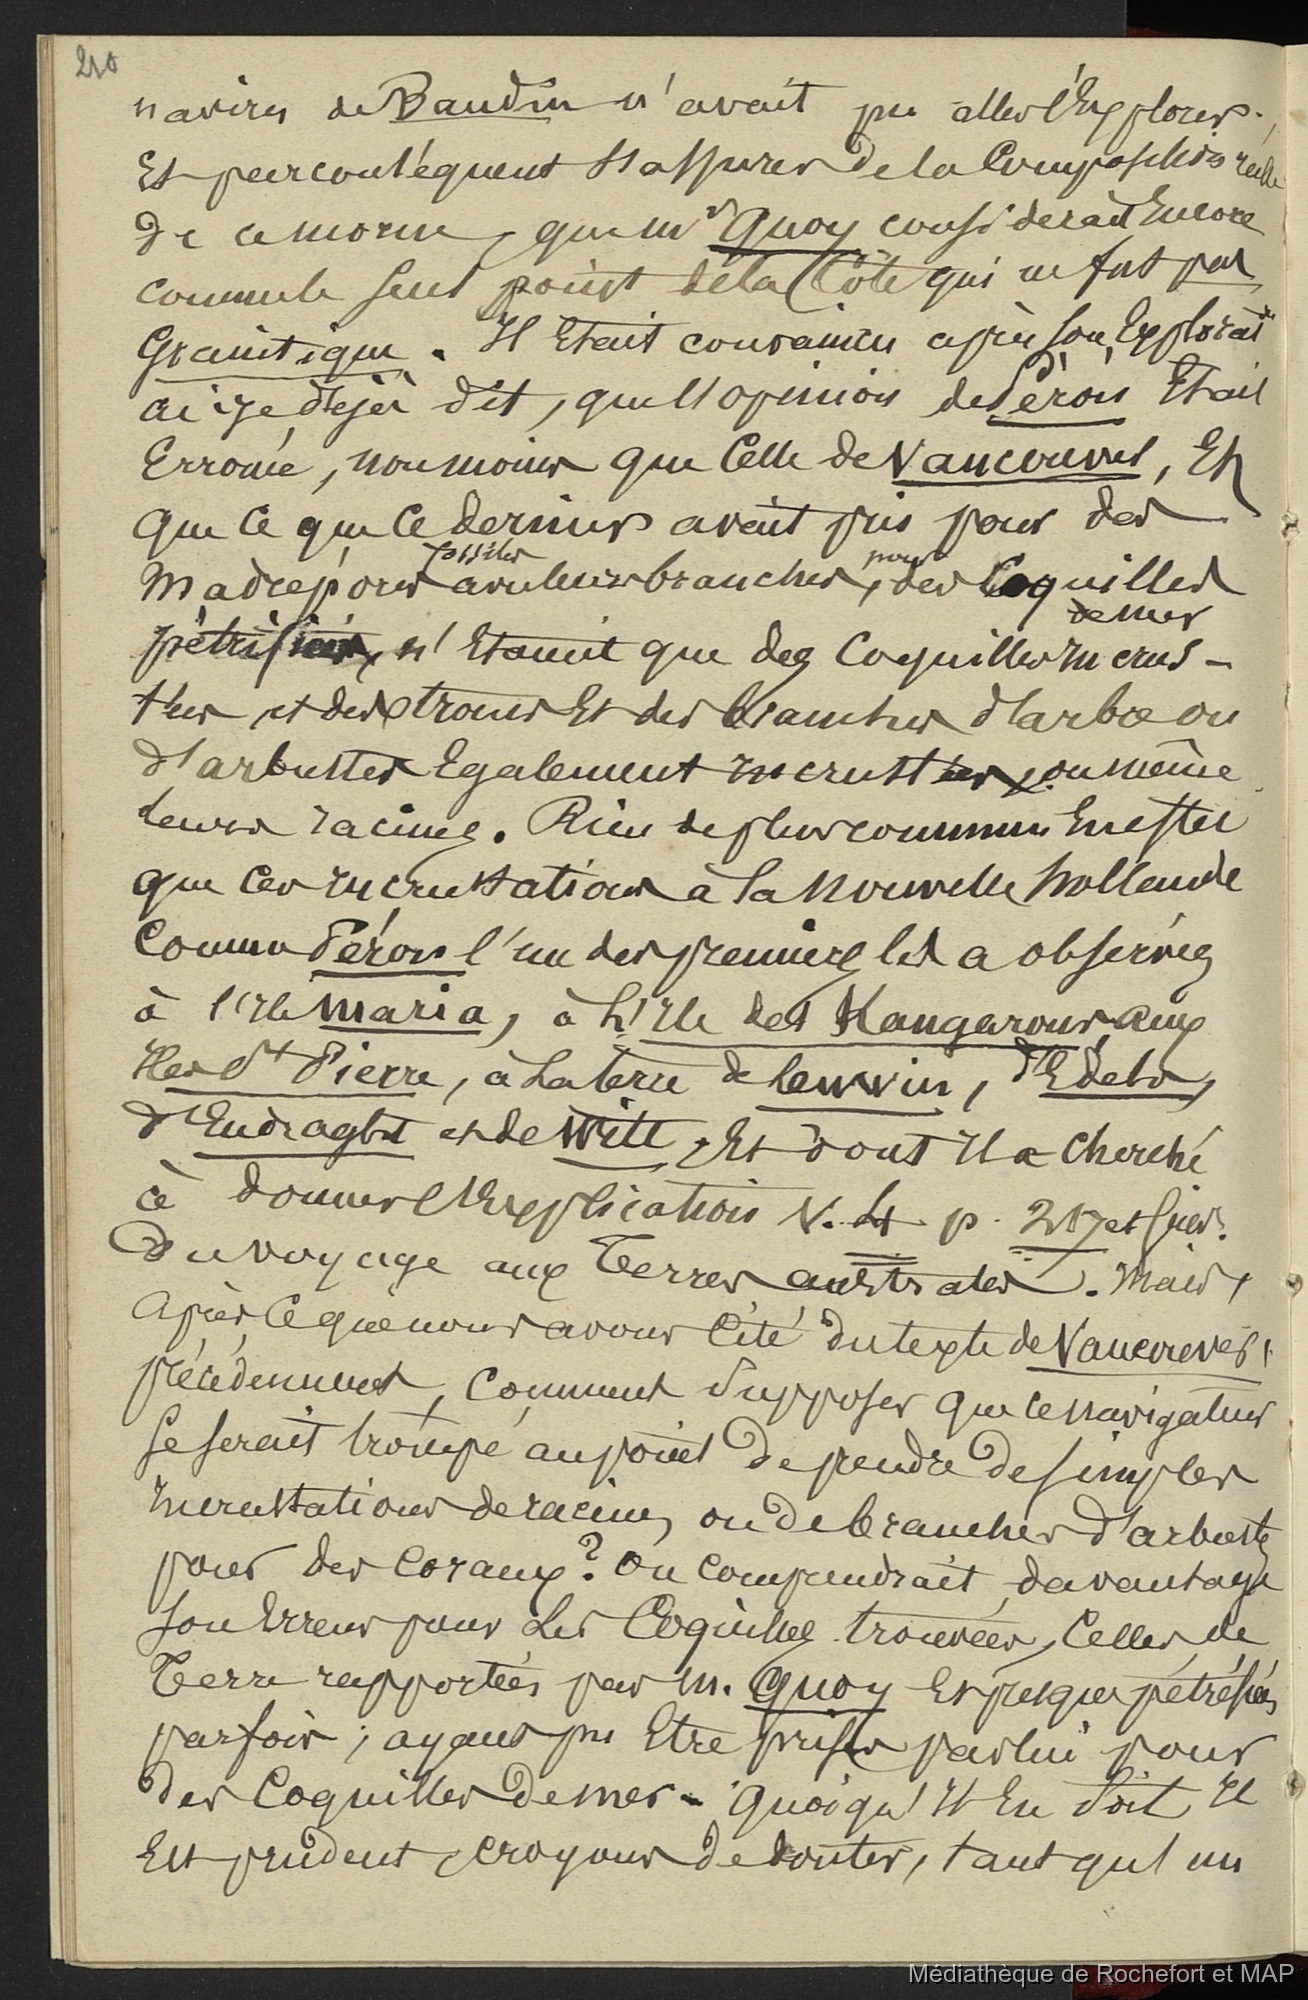 210
navires de Baudin n'avait pu aller l'Explorer.,
Et par conséquent s'assurer de la Composition réelle
de ce morne, que mr Quoy considérait Encore
comme le seul point de la Côte qui ne fut pas
Granitique. Il Etait convaincu après son Explorat
ai-je déjà dit, que l'opinion de Péron Etait
Erronée, non moins que Celle de Vancouver, Et
que ce que ce dernier avait pris pour des
Madrépores fossiles avec leurs branches, pour des Coquilles
pétrifiées, n'Etaient que des Coquilles de mer incrus-
tées, et des troncs Et des branches d'arbre ou
d'arbustes Egalement incrustées, ou même
leurs racines. Rien de plus commun En effet
que ces incrustations à la Nouvelle hollande
Comme Péron l'un des premiers les a observées
à l'Ile Maria, à l'Ile des Kangarous, aux
Iles St Pierre, à la terre de Leuwin, d'Edels,
d'Endraght et de Witt, Et dont Il a Cherché
à donner l'Explication V. 4 p. 217 et suiv.
Du voyage aux Terres australes. Mais,
Après ce que nous avons Cité du texte de Vancouver,
précédemment, comment supposer que ce navigateur
se serait trompé au point de prendre de simples
incrustations de racines, ou de branches d'arbuste
pour des Coraux? On comprendrait davantage
son Erreur pour les Coquilles trouvées, Celles de
Terre rapportées par m. Quoy Et presque pétréfiées
parfois; ayant pu Etre prises par lui pour
des Coquilles de mer - Quoiqu'Il En soit Il
Est prudent, croyons de douter, tant qu'un
Médiathèque de Rochefort et MAP